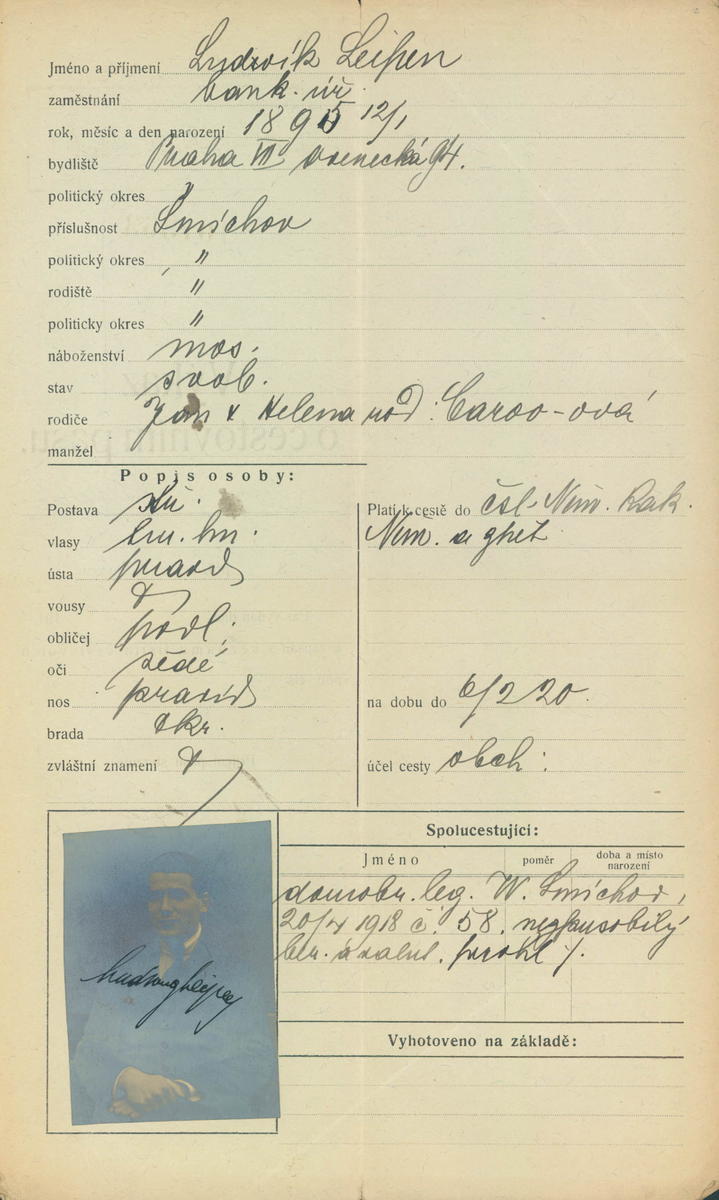 Jméno a příjmení Ludvík Leipen
zaměstnání bank. úř.
rok, měsíc a den narození 1895 12/1
bydliště Praha VII Ovenecká 94.
politický okres "
příslušnost Smíchov
politický okres "
rodiště "
politicky okres "
náboženství mos.
stav svob.
rodiče Jan & Helena roz:
manžel
Popis osoby:
Postava stř.
vlasy tm. hn.
ústa pravid
vousy
obličej podl.
oči šedé
nos pravid
brada okr.
zvláštní znamení
Platí k cestě do čsl. Něm. Rak.
Něm. a zpět
na dobu do 6/2 20.
účel cesty obch:
Spolucestující:
Jméno
poměr
doba a místo
narození
domobr. leg. W. Smíchov,
20/4 1918 č. 58. nezpůsobilý
prohl /.
Vyhotoveno na základě: